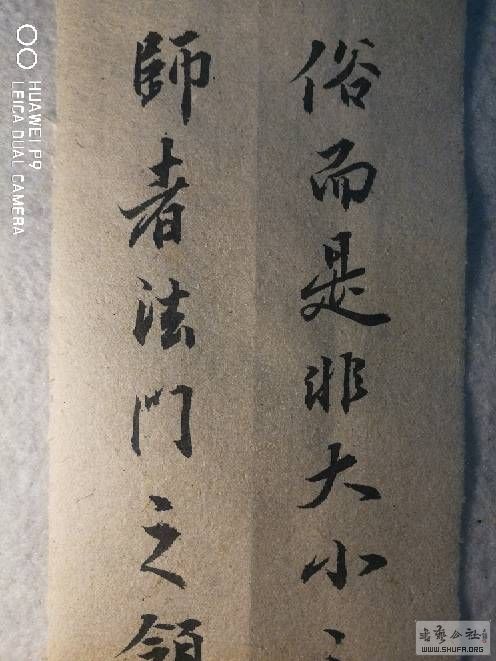 俗而是非大小之
師者法門之領
HUAWEI P9
LEICA DUAL CAMERA
书艺公社
WWW.SHUFA.ORG